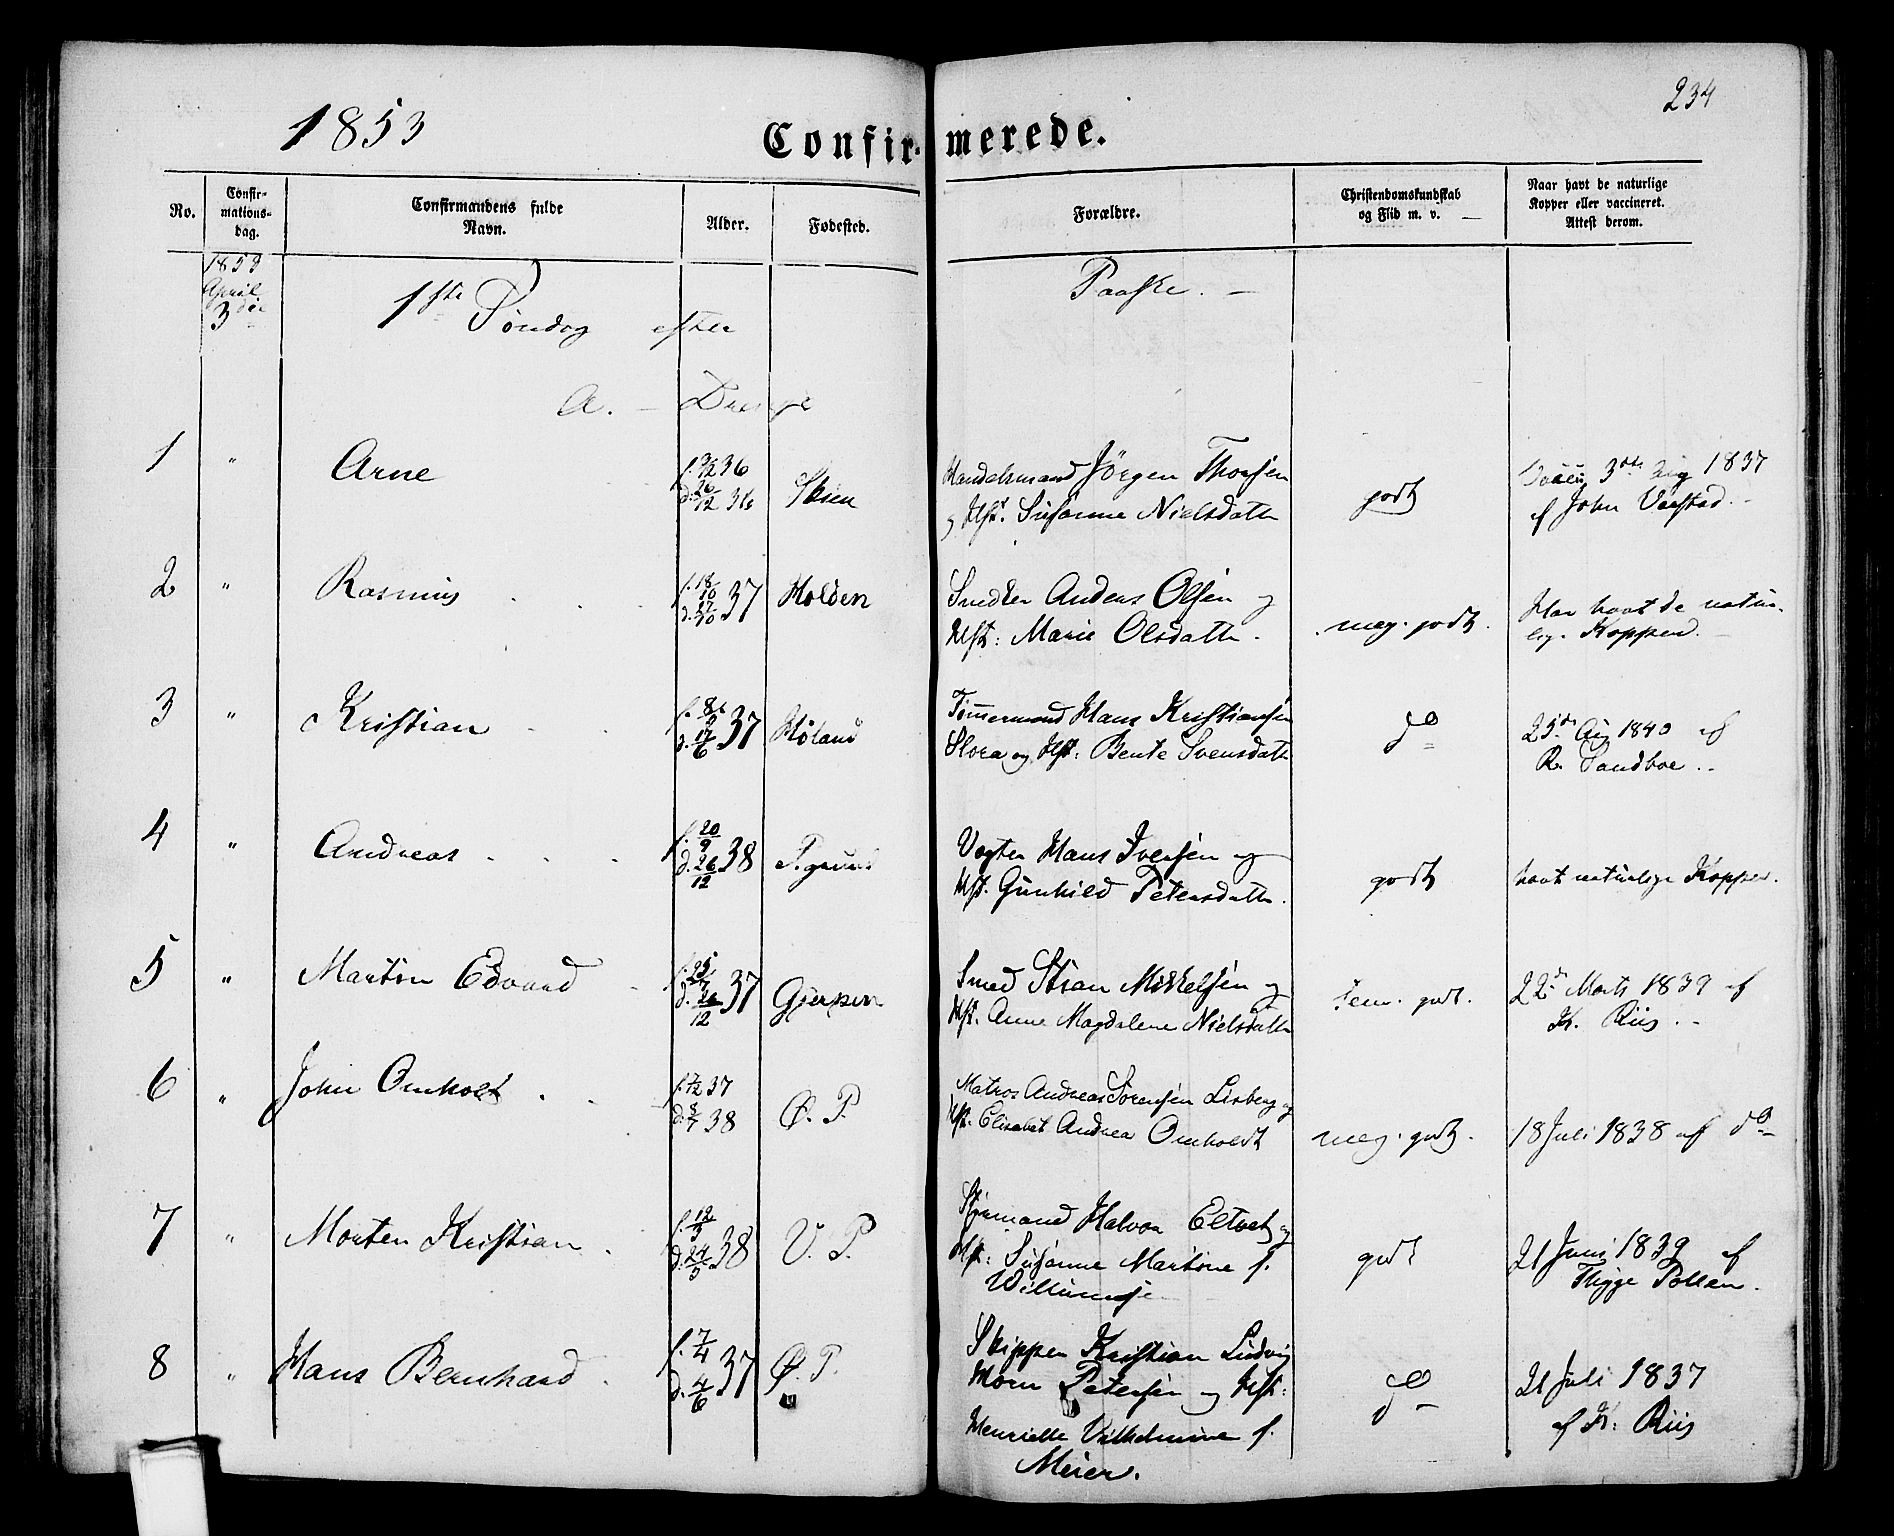 1853
234
Confir- merede.
No.
Confir-
mations-
dag.
Confirmandens fulde
Navn.
Alder.
Fødested.
Forældre.
Christendomskundskab
og Flid m. v.
Naar havt de naturlige
Kopper eller vaccineret.
Attest derom.
1853
April
3die
1ste Søndag efter Paaske.
A. - Drenge
1 " Arne f. 9/2 36 d. 26/12 36 Skien
Handelsmand Jörgen Thorsen
og Hst. Susanne Nielsdatte
godt
3die Aug 1837
af John Varstad.
2 " Rasmus f. 18/10 d. 27/10 37 Holden
Smeden Anders Olsen og
Hst: Marie Olsdatte.
meg. godt.
Har havt de natur-
lig. Kopper.
3 " Kristian f. d. 17/6 37 Höland
Tømmermand Hans Kristiansen
Slora og Hst: Bente Svensdatte
do
25de Aug 1840 af
R. Sandboe.
4 " Andreas f. 20/9 d. 26/12 38 P.grund
Vogter Hans Iversen og
Hst. Gunhild Petersdatte.
godt
havt naturlige Kopper.
5 " Martin Edvard f. 25/7 d. 26/12 37 Gjerpen
Smed Stian Mikkelsen og
Hst. Anne Magdalene Nielsdatte
tem. godt.
22de Marts 1839 af
K. Riis.
6 " John Omholt f. 7/12 37 d. 8/7 38 Ø. P.
Matros Andreas Sørensen Lisberg og
Hst. Elisabet Andrea Omholdt
meg. godt.
18 Juli 1838 af do
7 " Morten Kristian f. 12/3 d. 24/5 38 V. P.
Styrmand Halvor Eltvet og
Hst: Susanne Martine f.
Willumsen
godt
21 Juni 1839 af
Thygge Polsen.
8 " Hans Bernhard f. 7/4 d. 4/6 37 Ø. P.
Skipper Kristian Ludvig
Morn Petersen og Hst:
Henriette Vilhelmine f.
Meier.
do
21 Juli 1837
af K. Riis